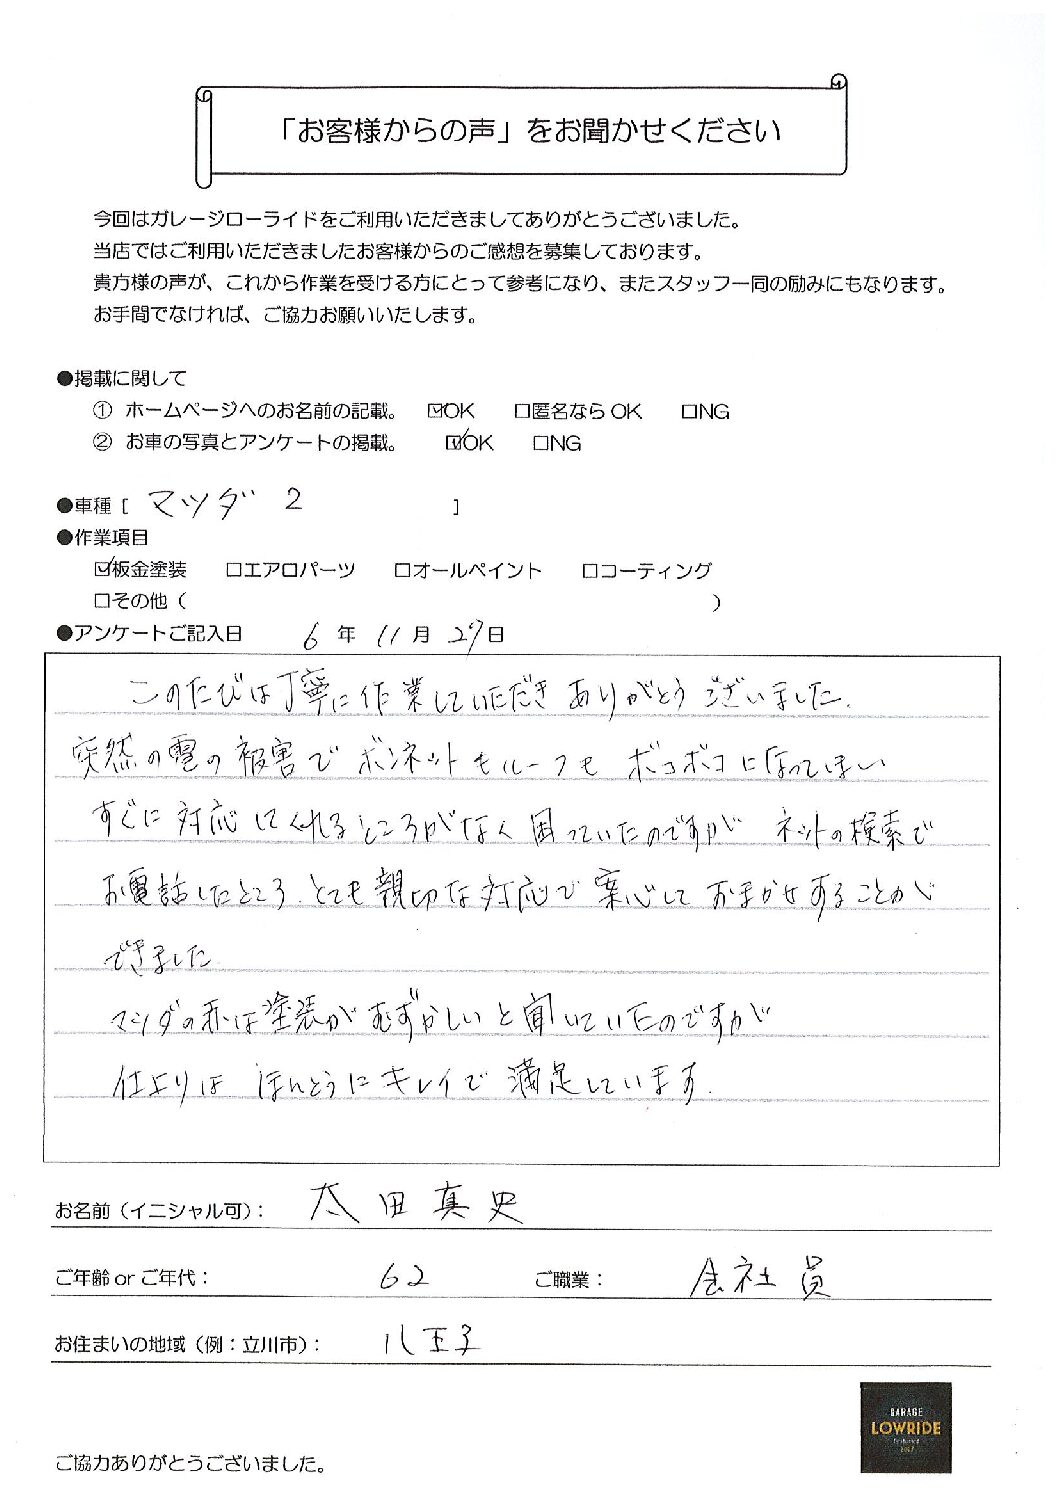 「お客様からの声」をお聞かせください
今回はガレージローライドをご利用いただきましてありがとうございました。
当店ではご利用いただきましたお客様からのご感想を募集しております。
貴方様の声が、これから作業を受ける方にとって参考になり、またスタッフ一同の励みにもなります。
お手間でなければ、ご協力お願いいたします。
●掲載に関して
① ホームページへのお名前の記載。 ☑OK □匿名なら OK □NG
② お車の写真とアンケートの掲載。 ☑OK □NG
●車種 [ マツダ 2 ]
●作業項目
☑板金塗装 □エアロパーツ □オールペイント □コーティング
□その他 ( )
●アンケートご記入日 6 年 11 月 27 日
このたびは丁寧に作業していただきありがとうございました.
突然の雹の被害でボンネットもルーフもボコボコになってしまい
すぐに対応してくれるところがなく困っていたのですが ネットの検索で
お電話したところ、とても親切な対応で案心しておまかせすることが
できました
マツダの赤は塗装がむずかしいと聞いていたのですが
仕上りは ほんとうにキレイで満足しています.
お名前(イニシャル可): 太田真史
ご年齢 or ご年代: 62 ご職業: 会社員
お住まいの地域(例:立川市): 八王子
GARAGE
LOWRIDE
ご協力ありがとうございました。